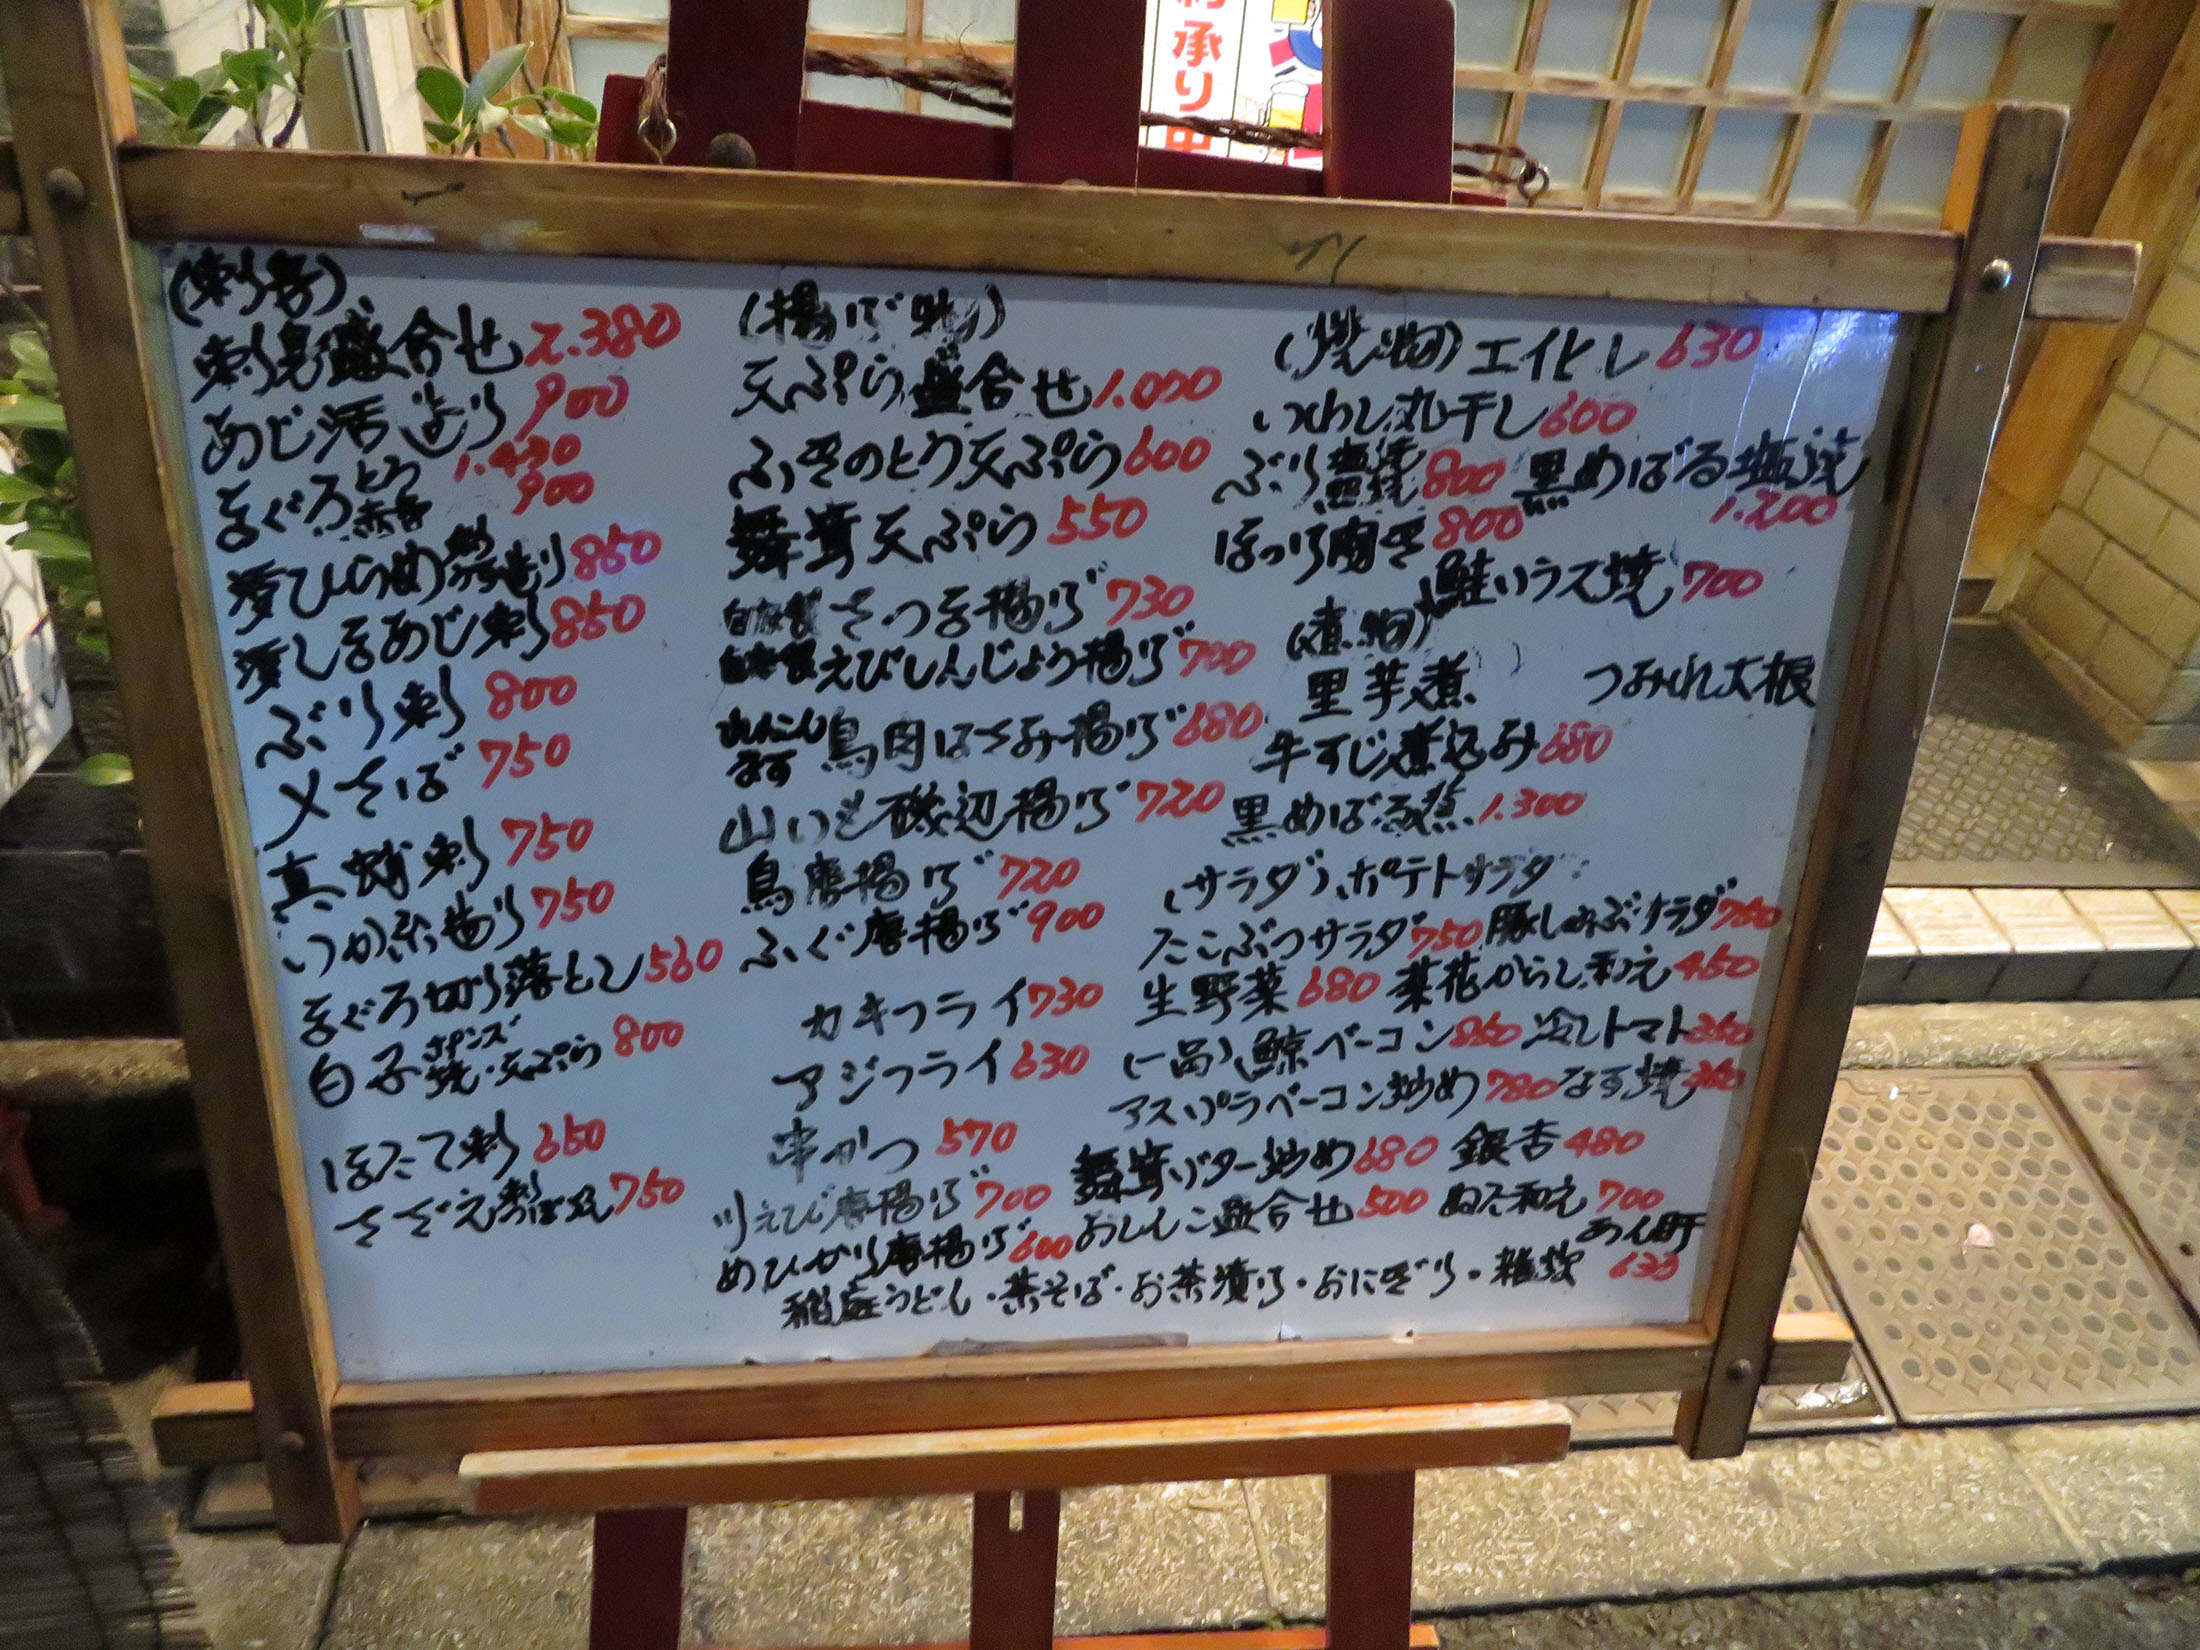 承り中
(刺身)
刺身盛合せ 2.380
あじ活造り 900
まぐろ とろ 1.430
赤身 900
活ひらめ刺 うす造り 850
活しまあじ刺 850
ぶり刺 800
〆さば 750
真蛸刺 750
いか糸造り 750
まぐろ切り落とし 560
白子 ポンズ 焼・天ぷら 800
ほたて刺 650
さざえ刺 つぼ焼 750
(揚げ物)
天ぷら盛合せ 1.000
ふきのとう天ぷら 600
舞茸天ぷら 550
自家製さつま揚げ 730
自家製えびしんじょう揚げ 700
れんこん 鳥肉はさみ揚げ 680
山いも磯辺揚げ 720
鳥唐揚げ 720
ふぐ唐揚げ 900
カキフライ 730
アジフライ 630
串かつ 570
川えび唐揚げ 700
めひかり唐揚げ 600
(焼物) エイヒレ 630
いわし丸干し 600
ぶり 塩焼 照焼 800 黒めばる塩焼 1.200
ほっけ開き 800
鮭ハラス焼 700
(煮物)
里芋煮 つみれ大根
牛すじ煮込み 680
黒めばる煮 1.300
(サラダ) ポテトサラダ
たこぶつサラダ 750 豚しゃぶサラダ 700
生野菜 680 菜花からし和え 450
(一品) 鯨ベーコン 850 冷しトマト 350
アスパラベーコン炒め 780 なす焼
舞茸バター炒め 680 銀杏 480
おしんこ盛合せ 500 ぬた和え 700
あん肝 630
稲庭うどん・茶そば・お茶漬け・おにぎり・雑炊